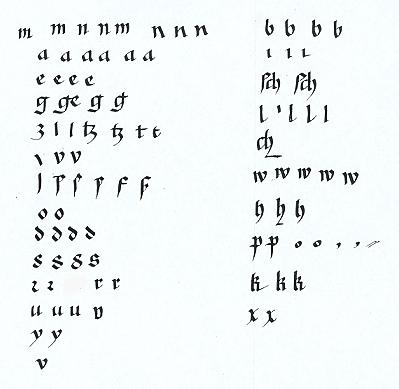 m m n nm n n n
a a a a a a
e e e e
g ge g g
z l l tz tz t t
v v
o o
d d d d
s s s s
ꝛ ꝛ r r
u u u v
y y
v
b b b b
ı ı ı
ſch ſch
l ' l l l
ch
w w w w w
h h h
p p o o , , =
k k k
x x